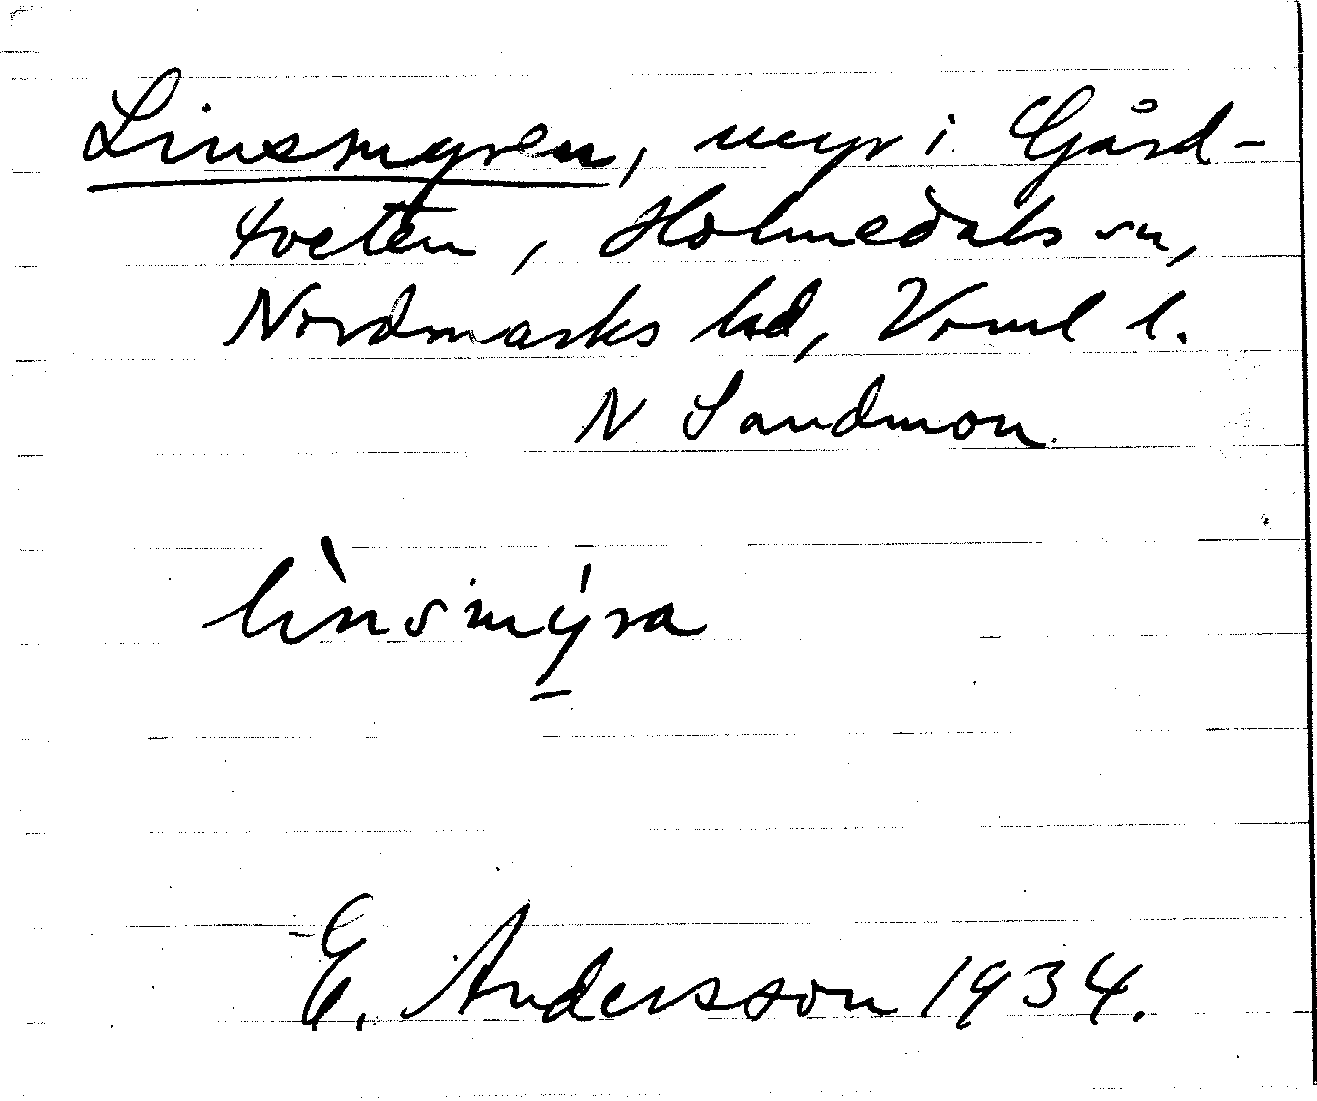 Linsmyren, myr i Gård-
tveten, Holmedals sn,
Nordmarks hd, Vrml l.
N Sandmon.
lìnsmýra
E. Andersson 1934.